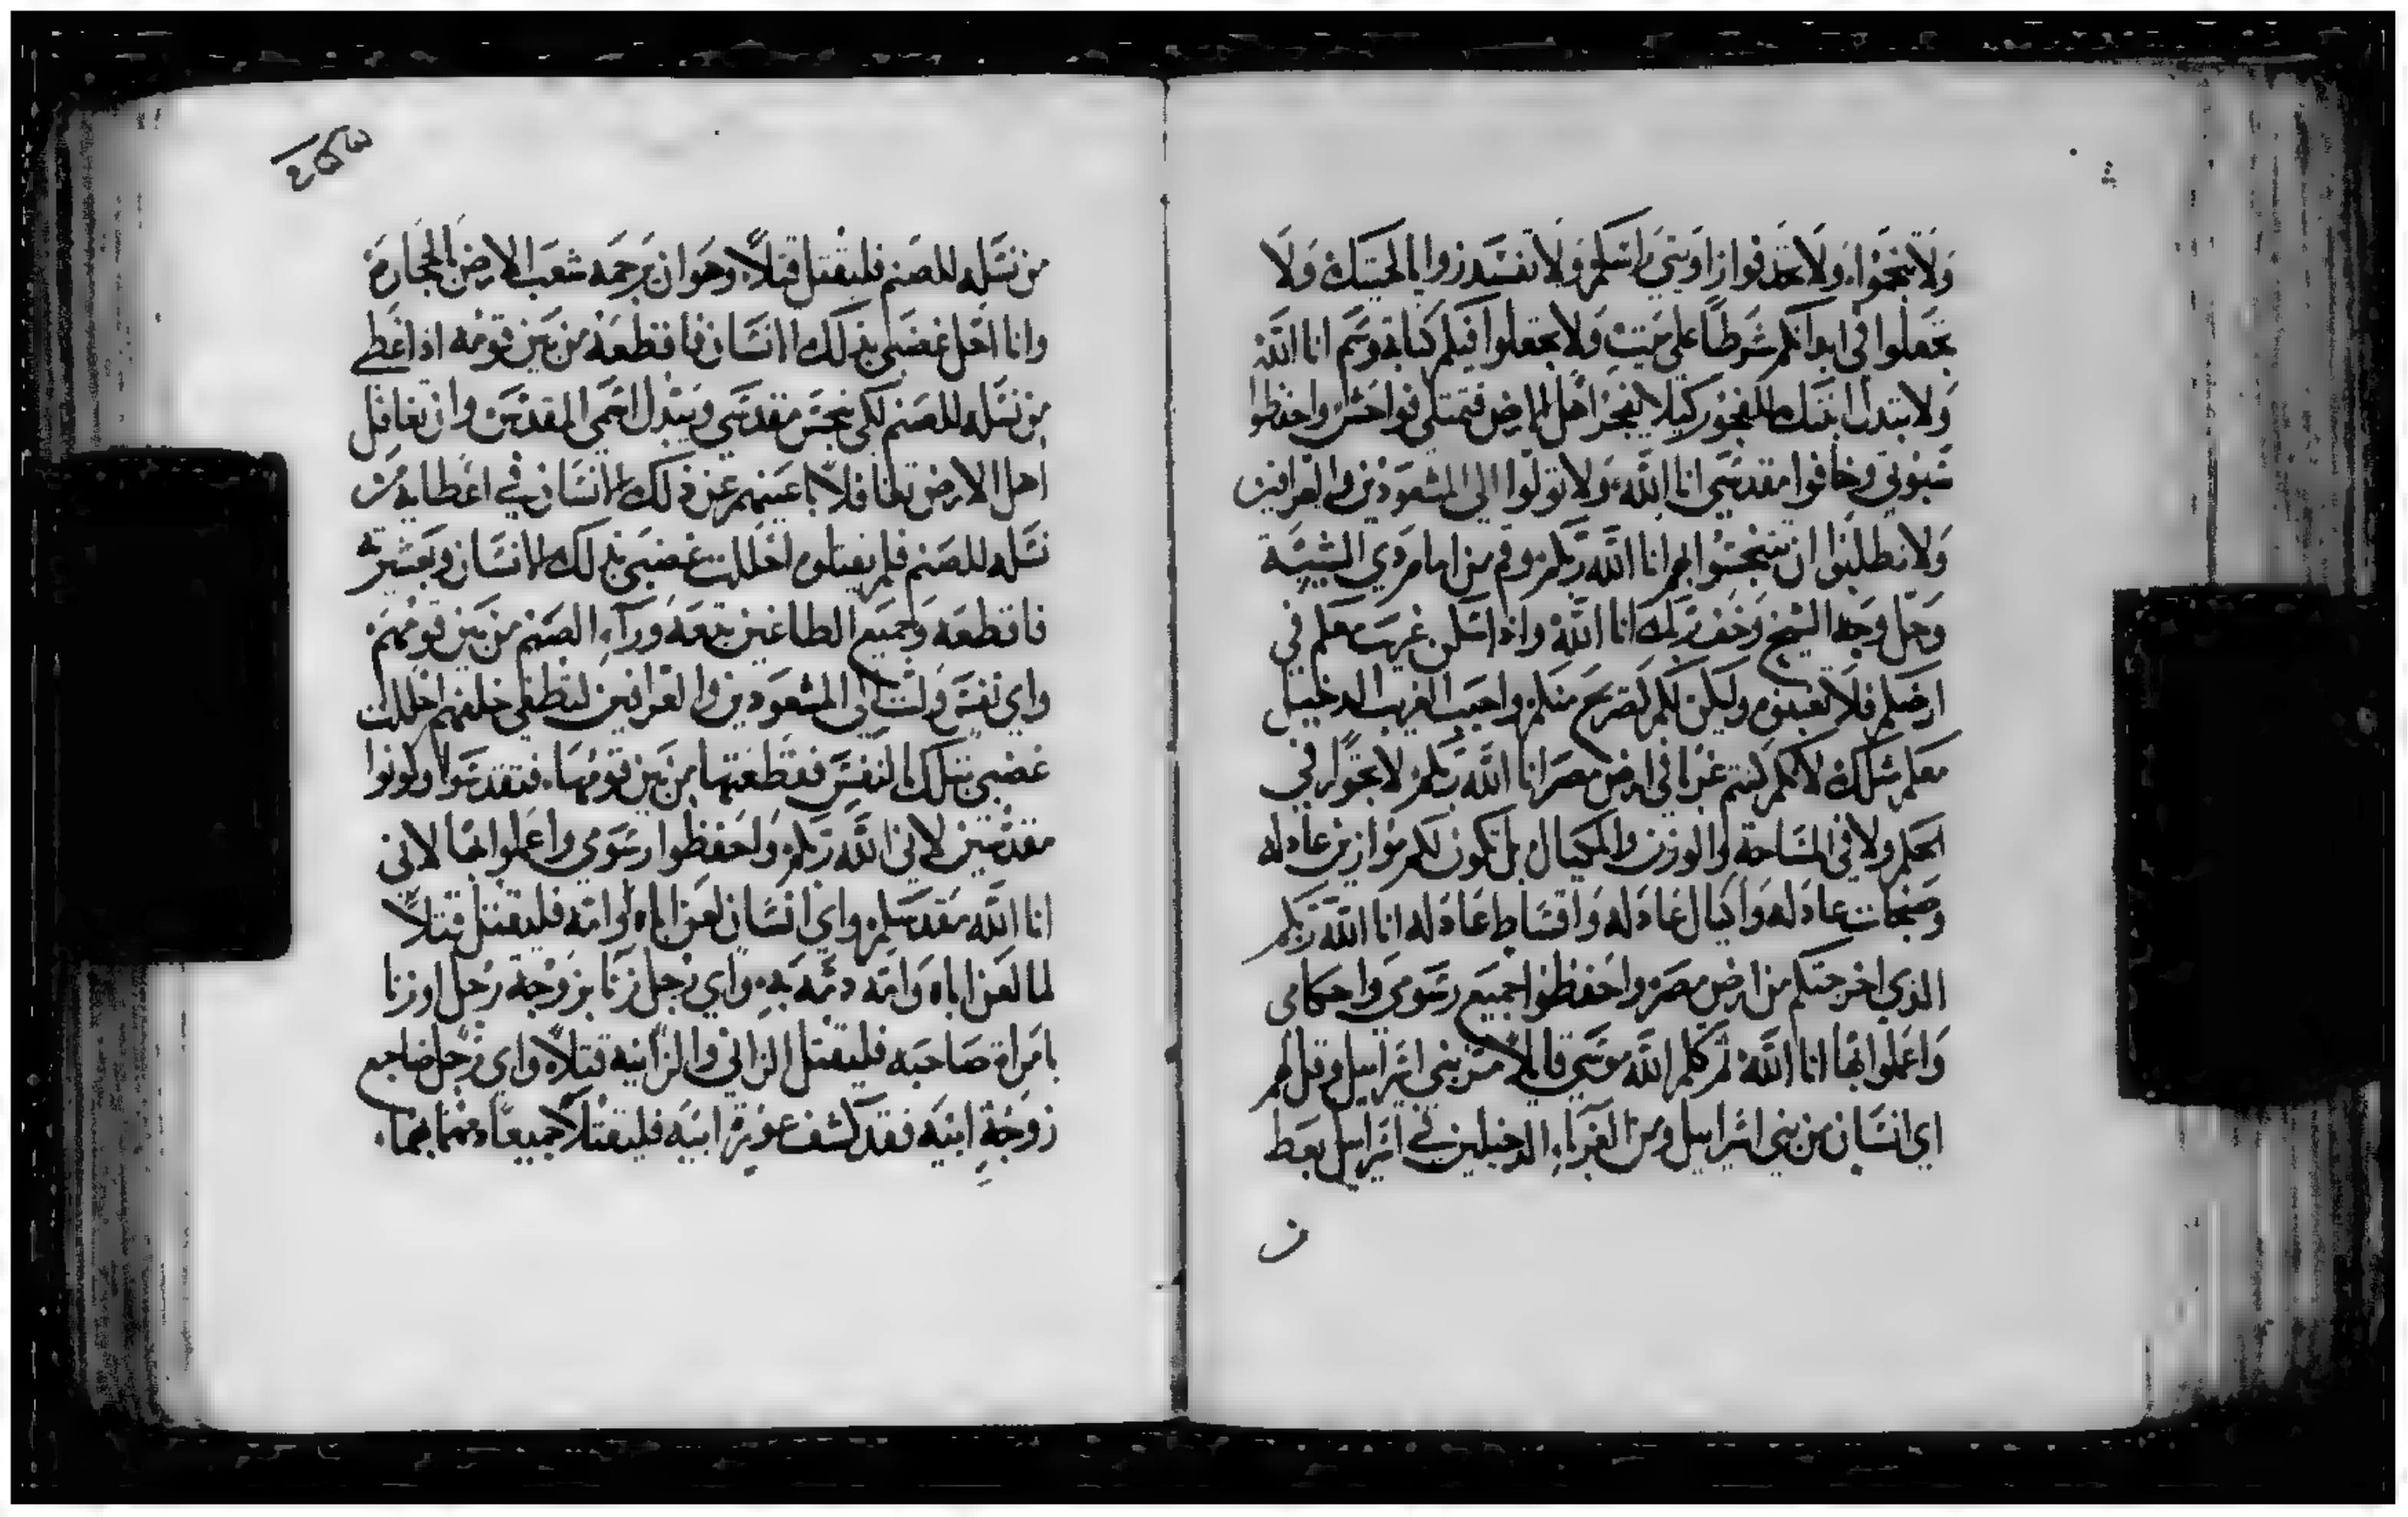 وَلَا تنحَوا، وَلَا تحدفوا زاويتي رَاسَكم وَلَا تفسَدزوايا لحيتك وَلَا
تجعلوا في ابدانكم شَرطًا علي ميّتٍ وَلا تجعلوا فيكم كتابة وَسَم انا اللَّهْ
وَلا تبتدل ابنتك للفجور كيلا يفجرْ اهل الارض فتمتلي فواحش واحفظوا
سُبُوتي وخافوا مقدسَي انا اللَّه وَلا تولّوا الي المشعوذين والعرافين
وَلا تطلبوا ان تتنجسُوا بهم انا اللَّه ربَّكم وقم من امام ذي الشيبَة
وَجلّ وَجه الشيخ وَخف ربّك انا اللَّهْ واذا سَكن غريبٌ معكم في
ارضكم فَلا تغبنوه وليكن لكم كصريح منكم واحبب الغريب الدخيل
معكم مثلك لانكم كنتم غربا في ارض مصر انا اللَّه ربّكم لا تجوروا في
الحكم ولا في المسَاحة وَالوزن والمكيال بل تكون لكم موازين عادله
وَصنجات عادله وَاكيال عَادله وَاقسَاط عَادله انا اللَّه ربّكم
الذي اخرجتكم من ارض مصرْ واحفظوا جميع رسَومي وَاحكامي
وَاعملوا بهَا انا اللَّهْ ثم كلم اللَّه موسَي قايلًا مُر بني اسَراييل وقل لهم
اي انسَان من بني اسَراييل ومن الغربَاءِ الدخيلين في اسَراييل يعط
من نسَله للصَنم فليقتل قتلًا، وهوَ ان يَرجمَه شعبَ الارض بالحجارَة
وانا احُل غضبي بذلك الانسَان فاقطعَهْ من بَين قومْه اذ اعطي
من نسَله للصَنم لكي ينجسَ مقدسَي ويَبتذل اسَمي المقدسَ وان تغافل
اهل الارض تغافلًا باعينهم عن ذلك الانسَان في اعطايه من
نسَله للصَنم فلم يقتلوه احَللت غضبَي بذلك الانسَان وبعَشيرته
فاقطعَه وَجميع الطاغين تبعَهْ وَرآءِ الصَنم من بَين قومهمْ
واي نفسَ وَلّتْ الي المشعوَذين والعرَافين لتطغي خلفهم احَللت
غضبي بتلك النفسَ فقطعتها من بَين قومْهَا، فتقدسَوا وكونوا
مقدسَين لاني اللَّه ربّكمْ وَاحفظوا رسَومي واعملوا بهَا لاني
انا اللَّه مقدسَكمْ واي انسَان لعَن اباه اوامّه فليقتل قتلًا
لما لعَن اباه وَامّه دمَه بهِ واي رَجل زنَا بزوجة رَجل اوزنا
بامرَاة صَاحبَه فليقتل الزاني والزانيه قتلًا، واي رَجل ضاجع
زوجَةِ ابنَه فقد كشف عَورَة ابنَه فليقتلا جميعًا، دمهما بهما،